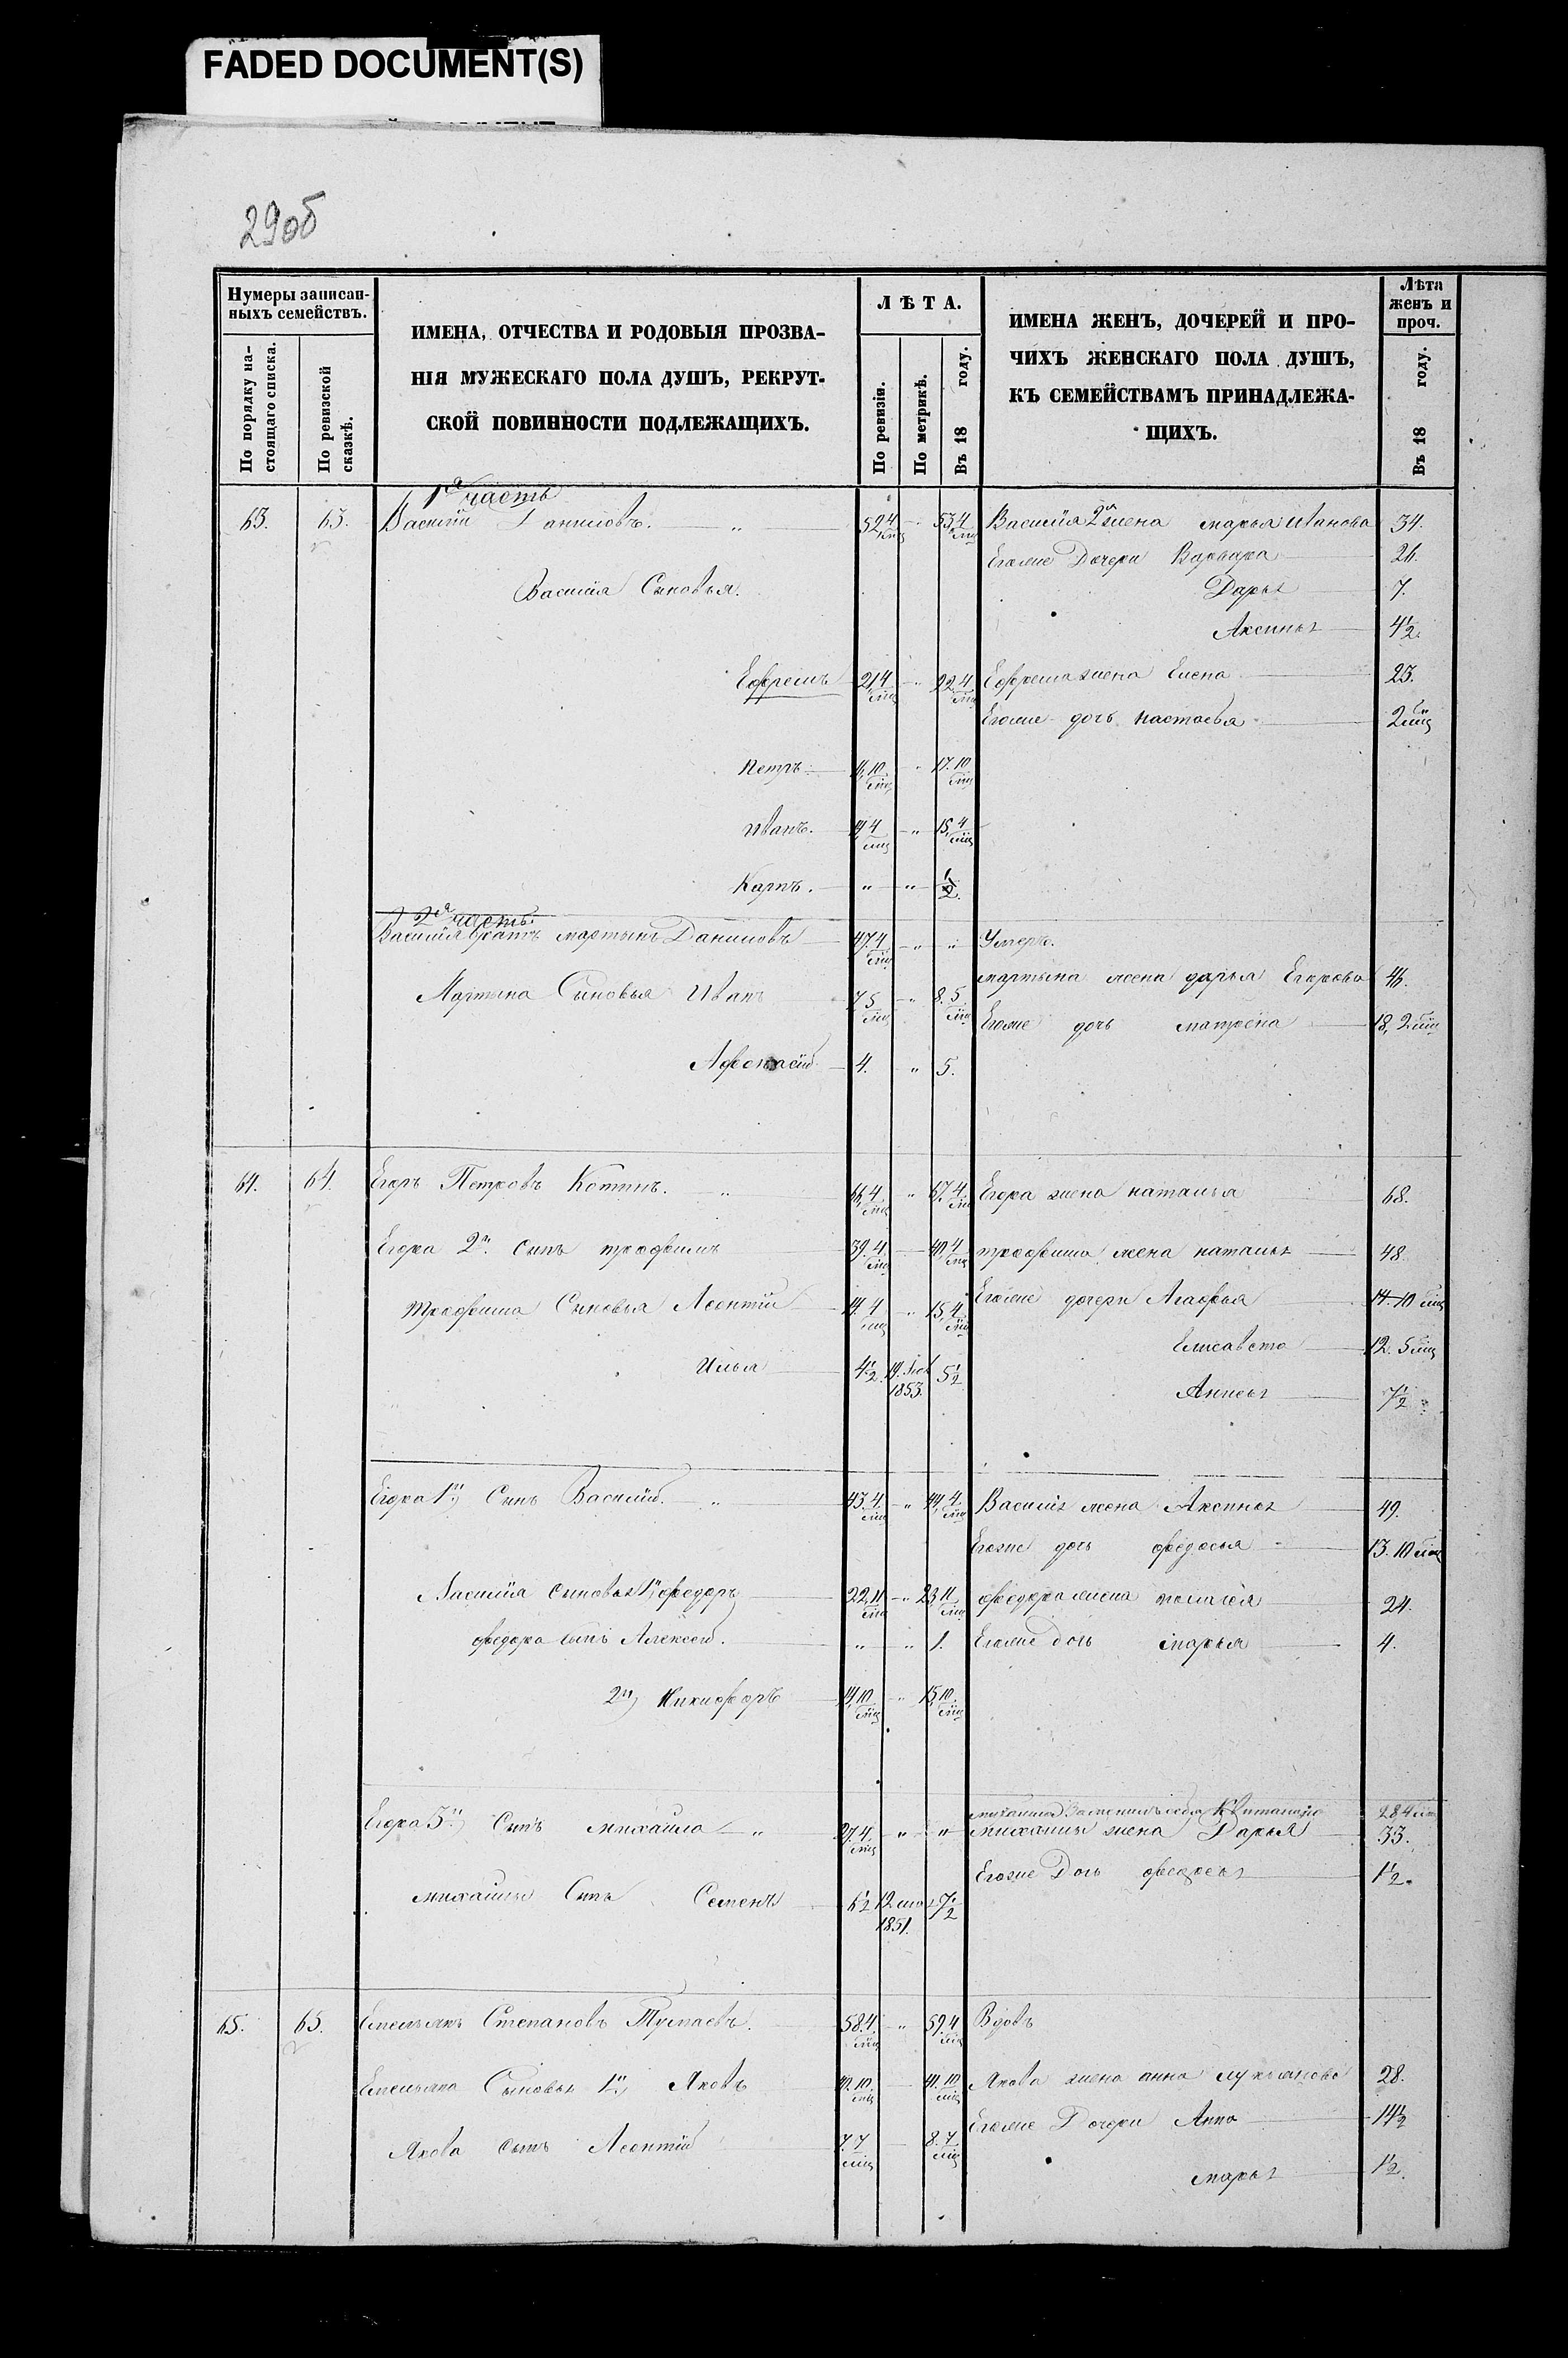 FADED DOCUMENT(S)
29об
Нумеры записан-
ныхъ семействъ.
По порядку на-
стоящаго списка.
По ревизской
сказкѣ.
ИМЕНА, ОТЧЕСТВА И РОДОВЫЯ ПРОЗВА-
НІЯ МУЖЕСКАГО ПОЛА ДУШЪ, РЕКРУТ-
СКОЙ ПОВИННОСТИ ПОДЛЕЖАЩИХЪ.
ЛѢТА.
По ревизіи.
По метрикѣ.
Въ 18 году.
ИМЕНА ЖЕНЪ, ДОЧЕРЕЙ И ПРО-
ЧИХЪ ЖЕНСКАГО ПОЛА ДУШЪ,
КЪ СЕМЕЙСТВАМЪ ПРИНАДЛЕЖА-
ЩИХЪ.
Лѣта
женъ и
проч.
Въ 18 году.
1я часть
63. 63. Василій Даниловъ. " 52 4/мц " 53 4/мц Василія 2я жена Марья Иванова 34.
Егоже Дочери Варвара 21.
Василія Сыновья. Дарья 7.
Аксинья 4 1/2.
Ефремъ 21 4/мц " 22 4/мц Ефрема жена Елена 23.
Егоже дочь Настасья 2 мц
Петръ 16, 10/мц " 17. 10/мц
Иванъ. 14 4/мц " 15, 4/мц
Карпъ. " " 1/2.
2я часть.
Василія братъ Мартынъ Даниловъ 47. 4/мц " " Умеръ.
Мартына жена Дарья Егорова 46.
Мартына Сыновья Иванъ 7 5/мц " 8. 5/мц
Егоже дочь Матрена 18, 2 мц
4. " 5.
64. 64. Егоръ Петровъ Котинъ. " 66, 4/мц " 67. 4/мц Егора жена Наталья 68.
Егора 2й сынъ Трофимъ 39. 4/мц 40, 4/мц Трофима жена Наталья 48.
Трофима Сыновья Леонтій 14. 4/мц " 15, 4/мц Егоже дочери Агафья 14. 10 мц
Елисавета 12. 5 мц
Илья 4 1/2. 19. 1853. 5 1/2
Анисья 7 1/2
Егора 1й Сынъ Василій. " 43. 4/мц " 44, 4/мц Василія жена Аксинья 49.
Егоже дочь Федосья 13. 10 мц
Василія сыновья 1й Федоръ 22, 11/мц " 23, 11/мц Федора жена Пелагея 24.
Федора сынъ Алексей. " " 1. Егоже дочь Марья 4.
2й Никифоръ 14, 10/мц " 15, 10/мц
28 4 мц
Егора 3й Сынъ Михаило " 27. 4/мц " " Михаилы жена Дарья 33.
Егоже Дочь Федосья 1 1/2.
Михаилы Сынъ Семенъ 6 1/2 12 1851. 7 1/2
65. 65. Емельянъ Степановъ Тумаевъ. 58. 4/мц " 59. 4/мц Вдовъ
Емельяна Сыновья 1й Яковъ 40. 10/мц 41. 10/мц Якова жена Анна Лукьянова 28.
Егоже Дочери Анна 14 1/2
Якова сынъ Леонтій 7. 7/мц 8. 7/мц
Марья 1 1/2.